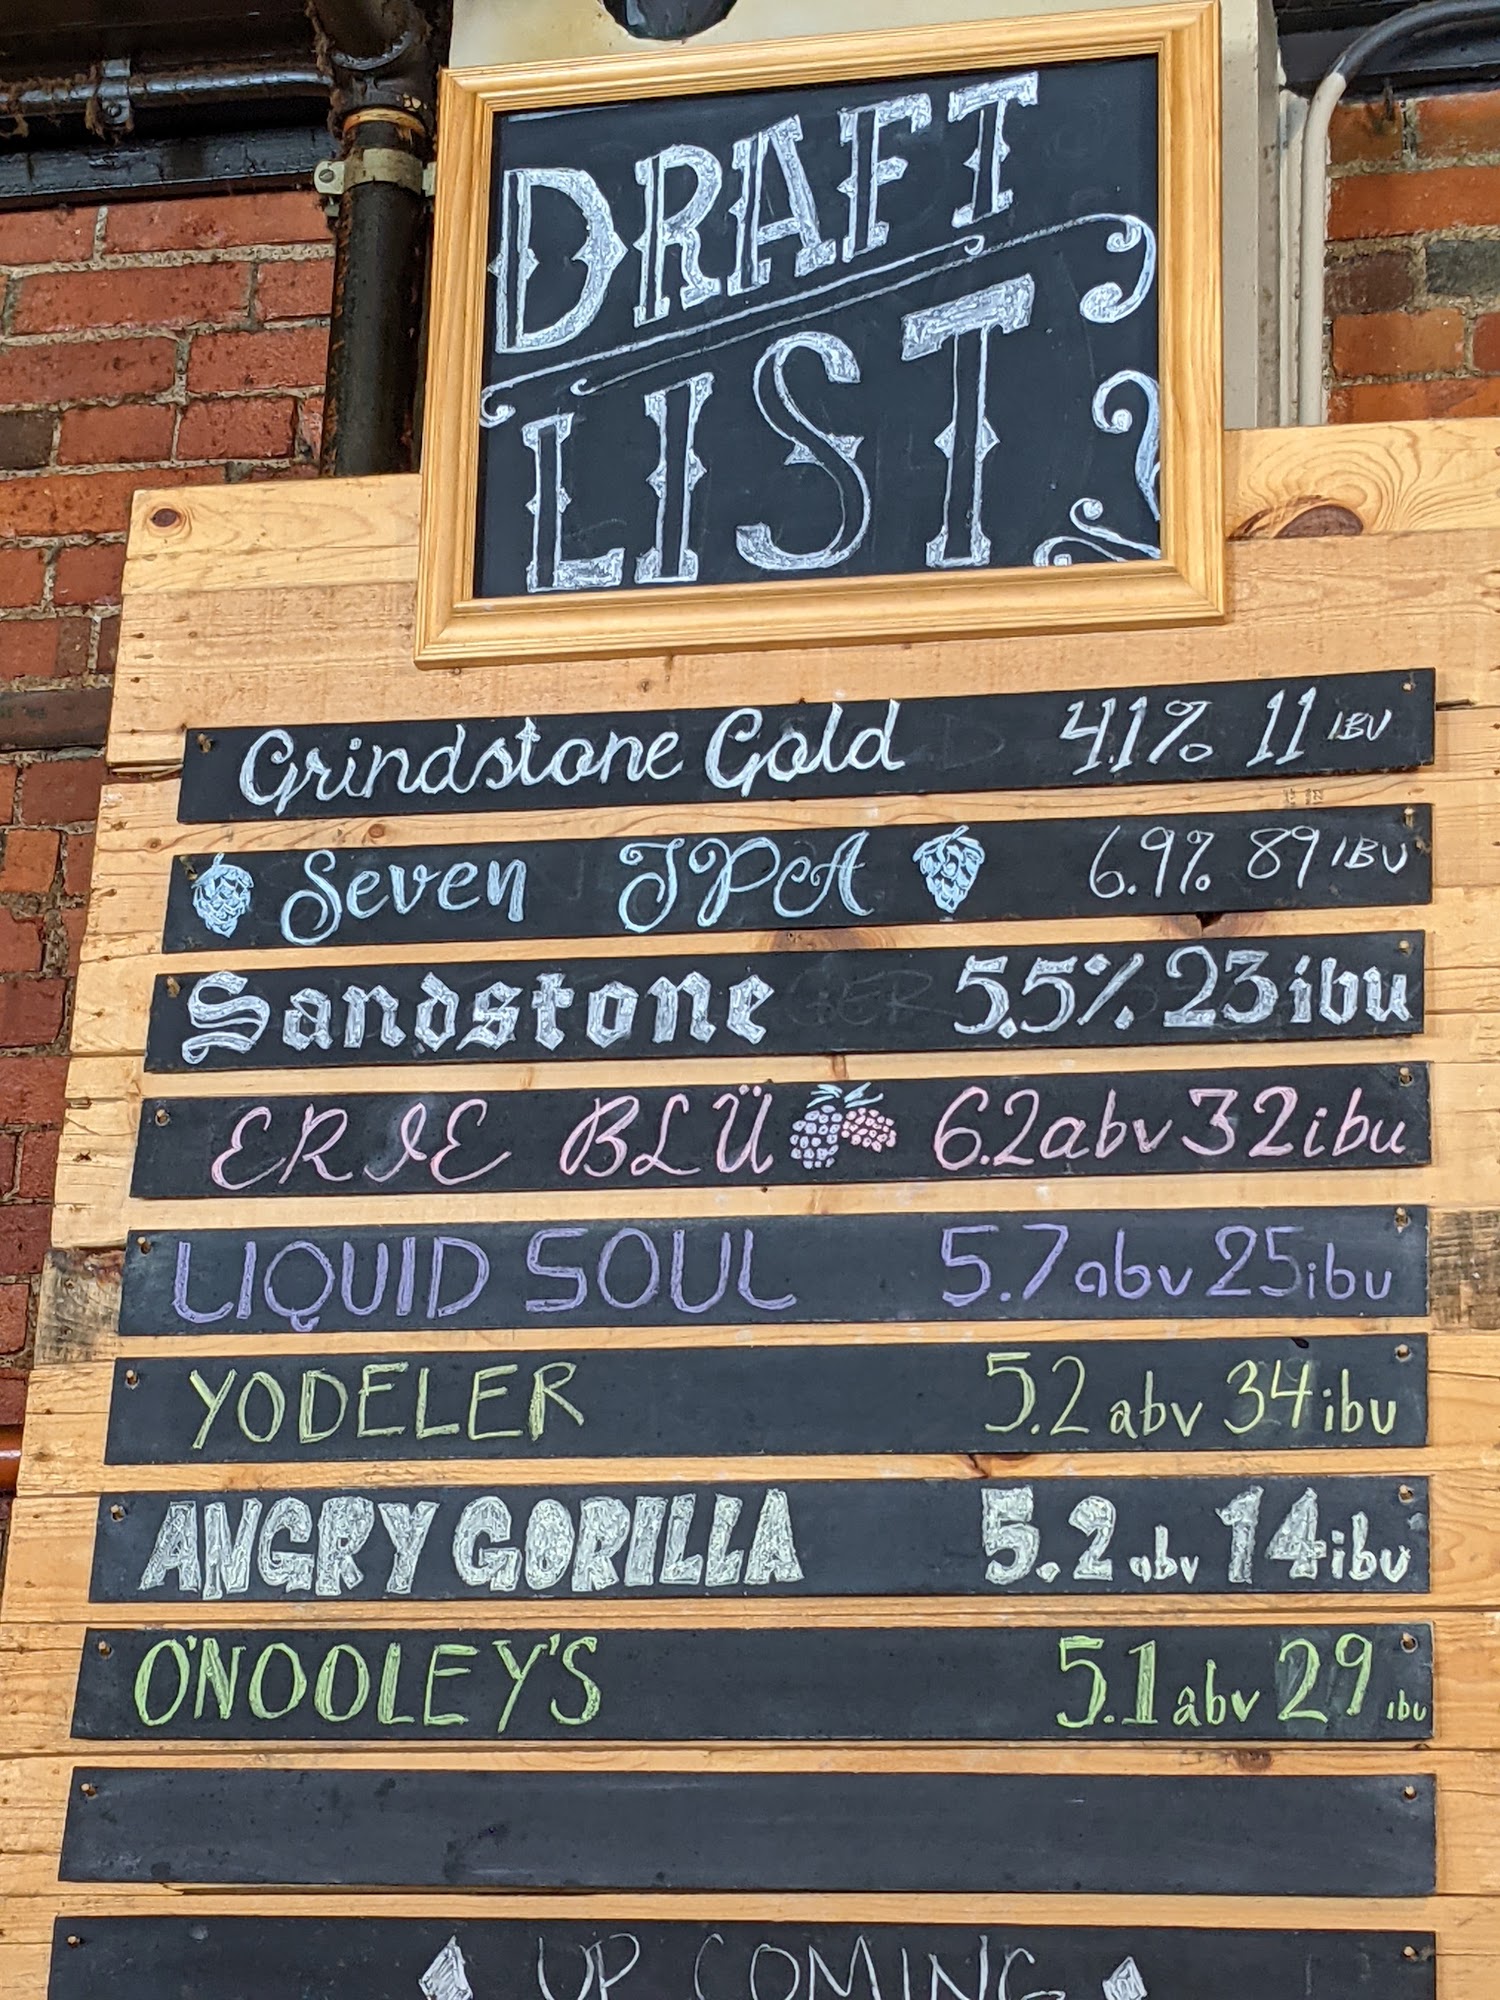 DRAFT
LIST
Grindstone Gold 4.1% 11 IBU
Seven IPA 6.9% 89 IBU
Sandstone 5.5% 23 ibu
ERIE BLÜ 6.2 abv 32 ibu
LIQUID SOUL 5.7 abv 25 ibu
YODELER 5.2 abv 34 ibu
ANGRY GORILLA 5.2 abv 14 ibu
O'NOOLEY'S 5.1 abv 29 ibu
UP COMING